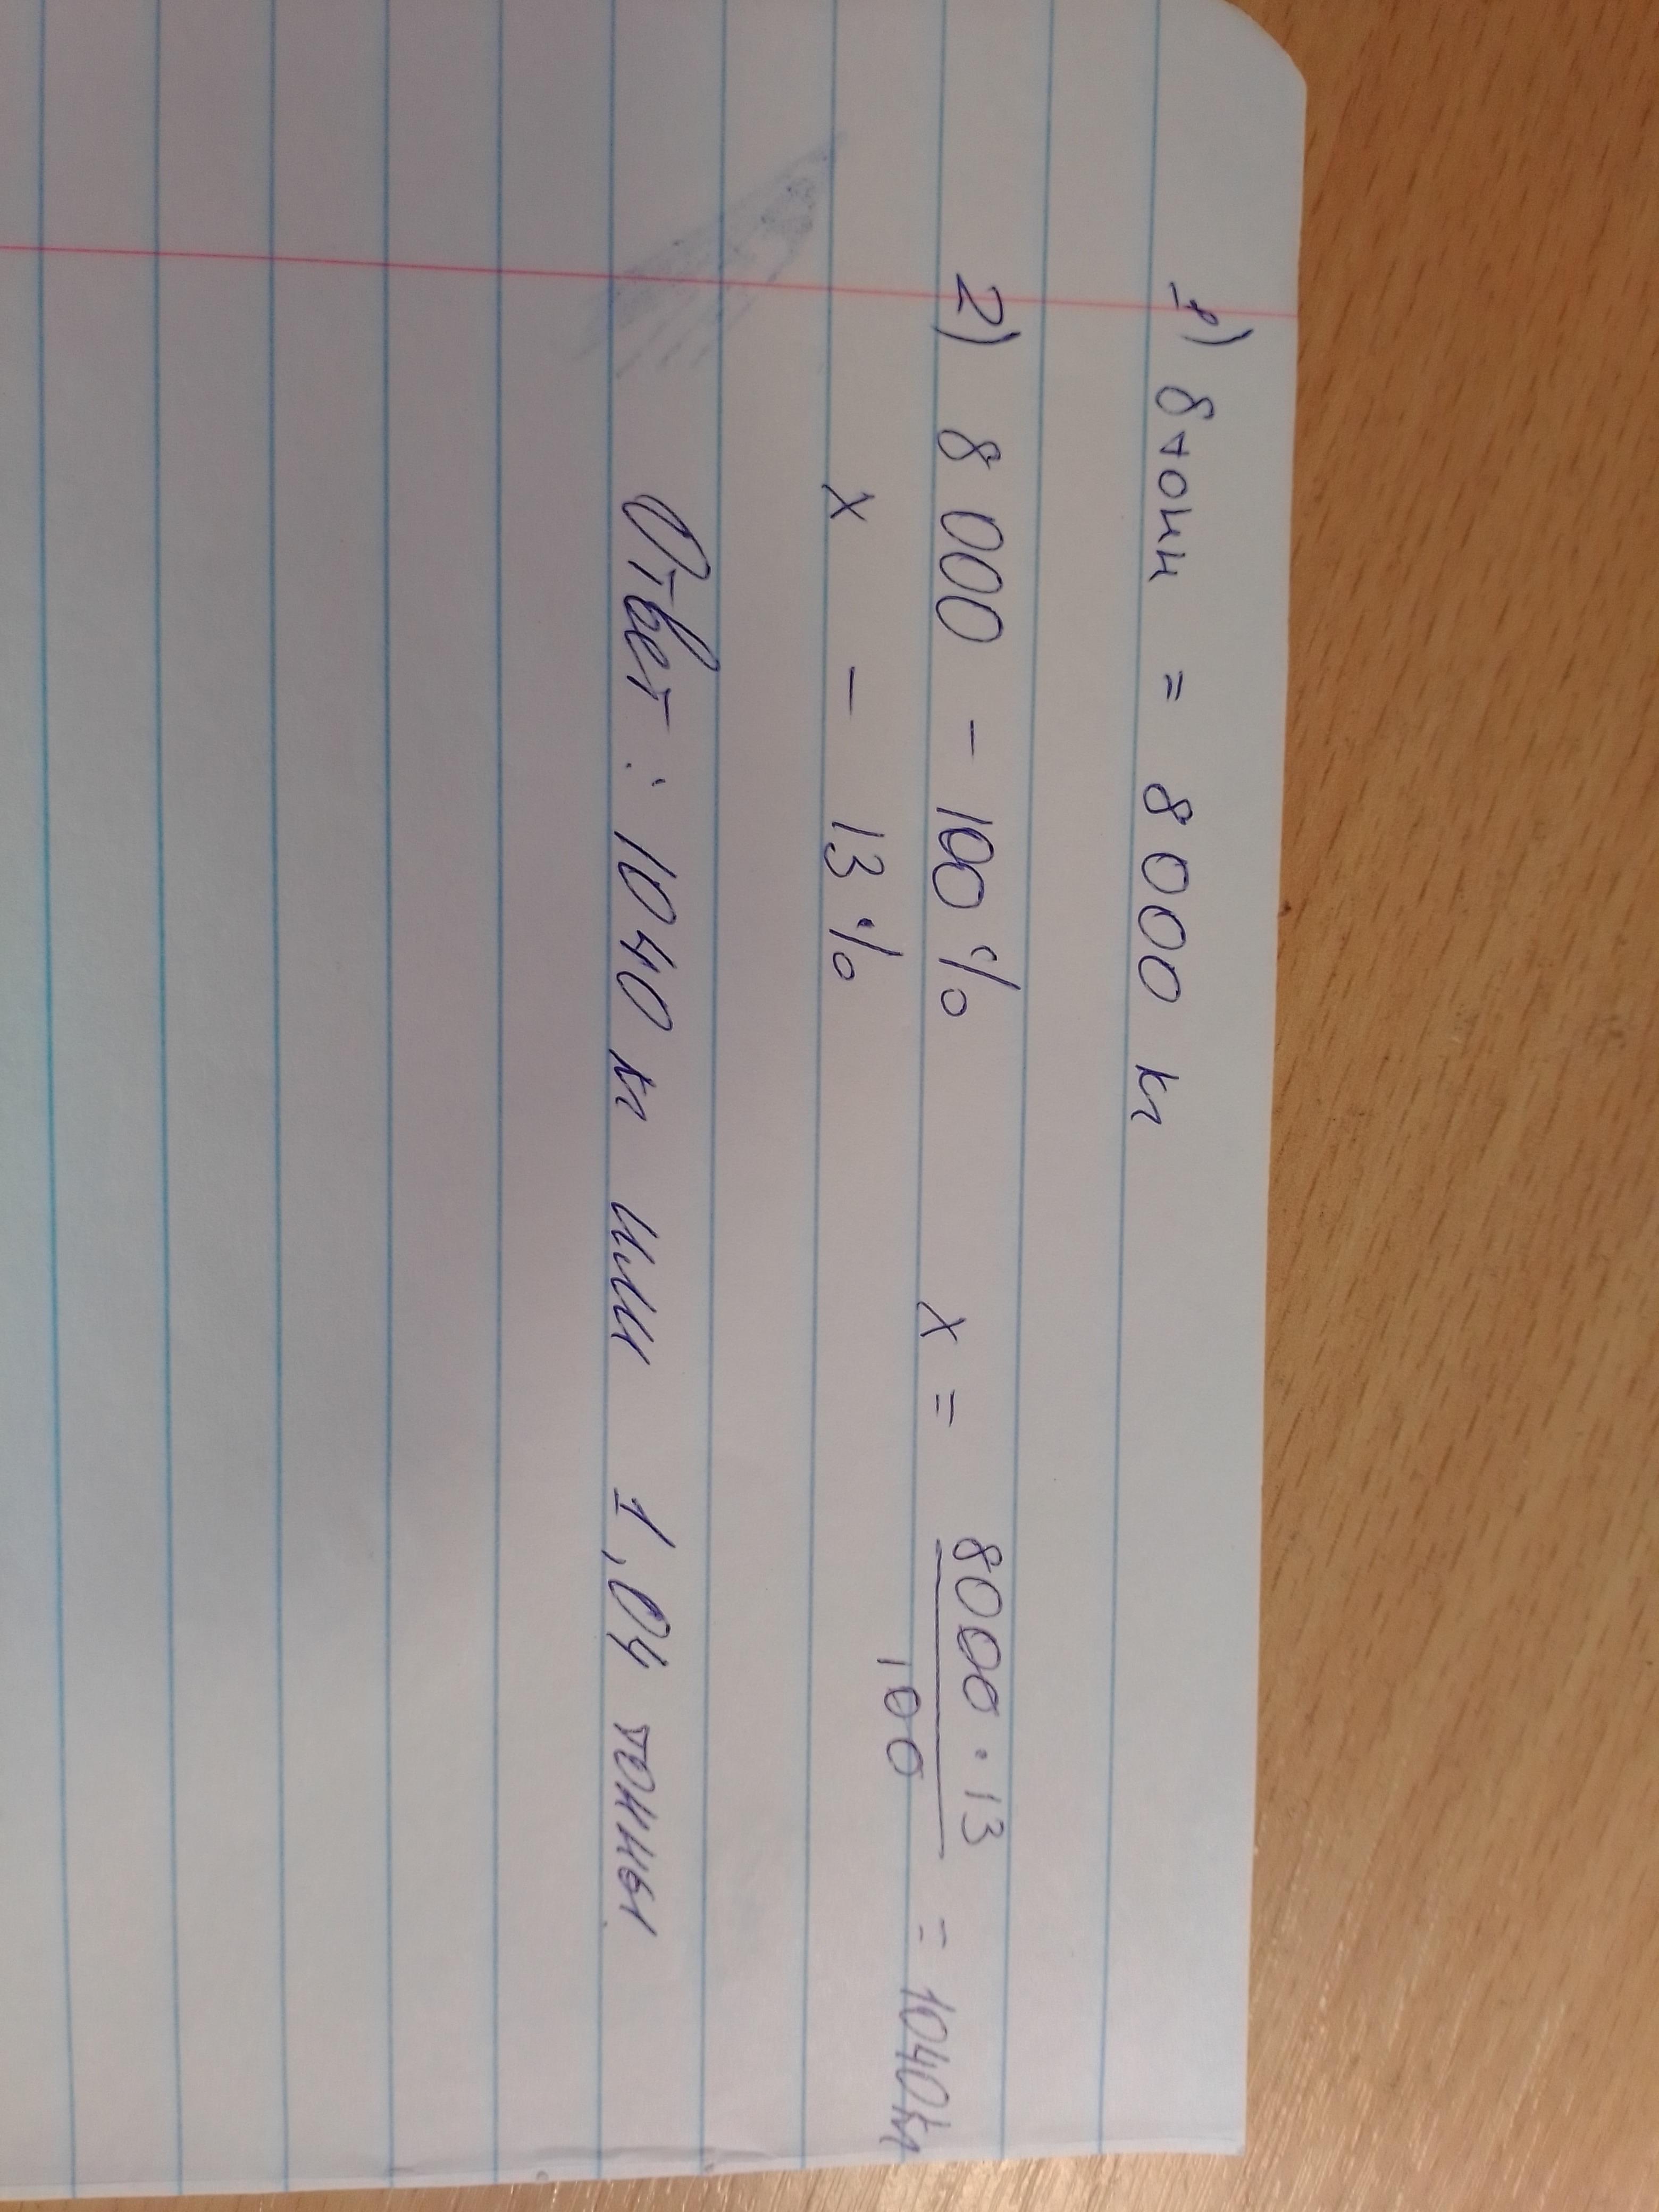 1) 8 тонн = 8 000 кг
2) 8 000 – 100 % x = 8000 · 13 / 100 = 1040 кг
x – 13 %
Ответ : 1040 кг или 1,04 тонны.